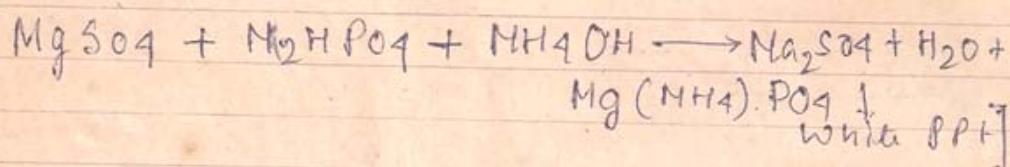 MgSO4 + Na2HPO4 + NH4OH ⟶ Na2SO4 + H2O +
Mg(NH4).PO4 ↓
White PPt]